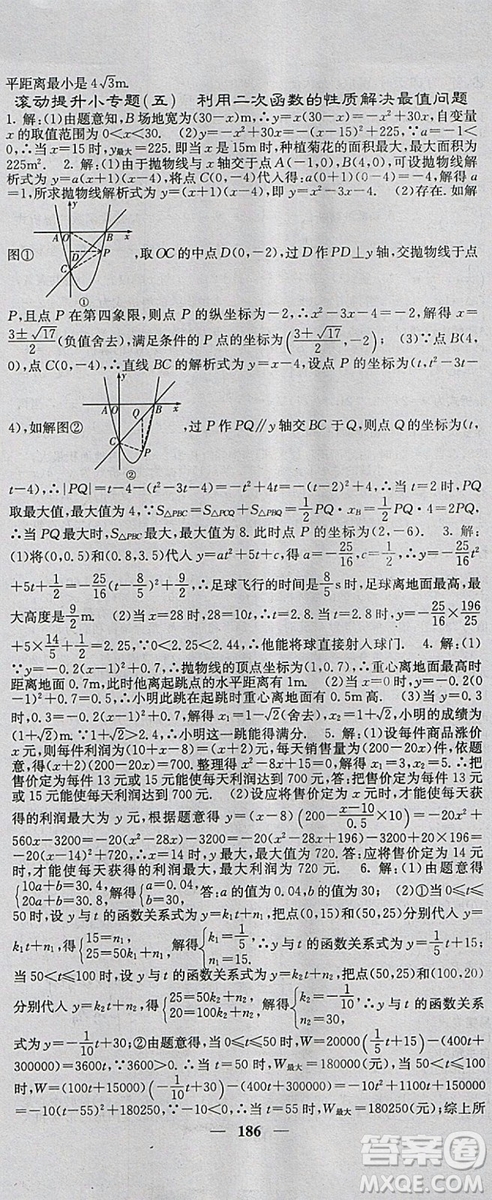 平距离最小是 4√3m.
滚动提升小专题(五) 利用二次函数的性质解决最值问题
1. 解:(1)由题意知,B 场地宽为(30-x)m,∴y=x(30-x)=-x²+30x,自变
量 x 的取值范围为 0<x<30. (2)y=-x²+30x=-(x-15)²+225,
∴当 x=15 时,y最大=225. 即当 x=15m 时,种植菊花的面积最大,最大面积为
225m². 2. 解:(1)由于抛物线与 x 轴交于点 A(-1,0),B(4,0),可设抛物线解
析式为 y=a(x+1)(x-4),将点 C(0,-4)代入得 a(0+1)(0-4)=-4.解得 a
=1,所求抛物线解析式为 y=(x+1)(x-4),即 y=x²-3x-4. (2)存在. 如解
图① y A O B x D P C ① ,取 OC 的中点 D(0,-2),过 D 作 PD⊥y 轴,交抛物线于点
P,且点 P 在第四象限,则点 P 的纵坐标为-2,∴x²-3x-4=-2,解得 x=
(3±√17)/2(负值舍去),满足条件的 P 点的坐标为((3+√17)/2,-2); (3)∵点 B(4,
0),点 C(0,-4),∴直线 BC 的解析式为 y=x-4,设点 P 的坐标为(t,t²-3t-
4),如解图② y A O Q B x C P ② ,过 P 作 PQ∥y 轴交 BC 于 Q,则点 Q 的坐标为(t,
t-4),∴|PQ|=t-4-(t²-3t-4)=-t²+4t=-(t-2)²+4,∴当 t=2 时,PQ
取最大值,最大值为 4,∵S△PBC=S△PCQ+S△PBQ=1/2PQ·xB=1/2PQ·4=2PQ,
∴当 PQ 最大时,S△PBC 最大,最大值为 8.此时点 P 的坐标为(2,-6). 3. 解:
(1)将(0,0.5)和(0.8,3.5)代入 y=at²+5t+c,得 a=-25/16,c=1/2,∴y=-25/16t²
+5t+1/2=-25/16(t-8/5)²+9/2,∴足球飞行的时间是8/5s 时,足球离地面最高,最
大高度是9/2m. (2)当 x=28 时,28=10t,∴t=2.8,当 t=2.8 时,y=-25/16×196/25
+5×14/5+1/2=2.25,∵0<2.25<2.44,∴他能将球直接射入球门. 4. 解:(1)
∵y=-0.2(x-1)²+0.7,∴抛物线的顶点坐标为(1,0.7),∴重心离地面最高时
距离地面 0.7m,此时他离起跳点的水平距离有 1m. (2)当 x=0 时,y=-0.2(0
-1)²+0.7=0.5(m),∴小明在起跳时重心离地面有 0.5m 高. (3)当 y=0.3 时,
0.3=-0.2(x-1)²+0.7,解得 x=1+√2或 x=1-√2(舍去),∴小明的成绩为
(1+√2)m,∵1+√2>2.4,∴小明这一跳能得满分. 5. 解:(1)设每件商品涨价
x 元,则每天的利润为(10+x-8)=(2+x)元,每天销售量为(200-20x)件,依题
意,得(2+x)(200-20x)=700. 整理得 x²-8x+15=0. 解得 x₁=3,x₂=5. ∴把
售价定为每件 13 元或 15 元能使每天利润达到 700 元. 答:将售价定为每件 13 元
或 15 元能使每天利润达到 700 元; (2)设应将售价定为 x 元时,才能使得每天获
得的利润最大为 y 元,根据题意得 y=(x-8)(200-(x-10)/0.5×10)=-20x²+
560x-3200=-20(x²-28x)-3200=-20(x²-28x+14²)-3200+20×196=
-20(x-14)²+720,∴x=14 时,y 最大,最大值为 720. 答:应将每件售价定为 14 元
时,才能使每天获得的利润最大,最大利润为 720 元. 6. 解:(1)由题意得
{10a+b=30.4, 20a+b=30.8, 解得{a=0.04, b=30. 答:a 的值为 0.04,b 的值为 30; (2)①当 0≤t≤
50 时,设 y 与 t 的函数关系式为 y=k₁t+n₁,把点(0,15)和(50,25)分别代入 y=
k₁t+n₁,得{15=n₁, 25=50k₁+n₁, 解得{k₁=1/5, n₁=15, ∴y 与 t 的函数关系式为 y=1/5t+15;
当 50<t≤100 时,设 y 与 t 的函数关系式为 y=k₂t+n₂,把点(50,25)和(100,20)
分别代入 y=k₂t+n₂,得{25=50k₂+n₂, 20=100k₂+n₂, 解得{k₂=-1/10, n₂=30, ∴y 与 t 的函数关系式
为 y=-1/10t+30;②由题意得,当 0≤t≤50 时,W=20000(1/5t+15)-(400t+
300000)=3600t,∵3600>0.∴当 t=50 时,W最大=180000(元)当 50<t≤100
时,W=(100t+15000)(-1/10t+30)-(400t+300000)=-10t²+1100t+150000
=-10(t-55)²+180250,∵-10<0,∴当 t=55 时,W最大=180250(元);综上所
186
答案圈
MXQE.COM